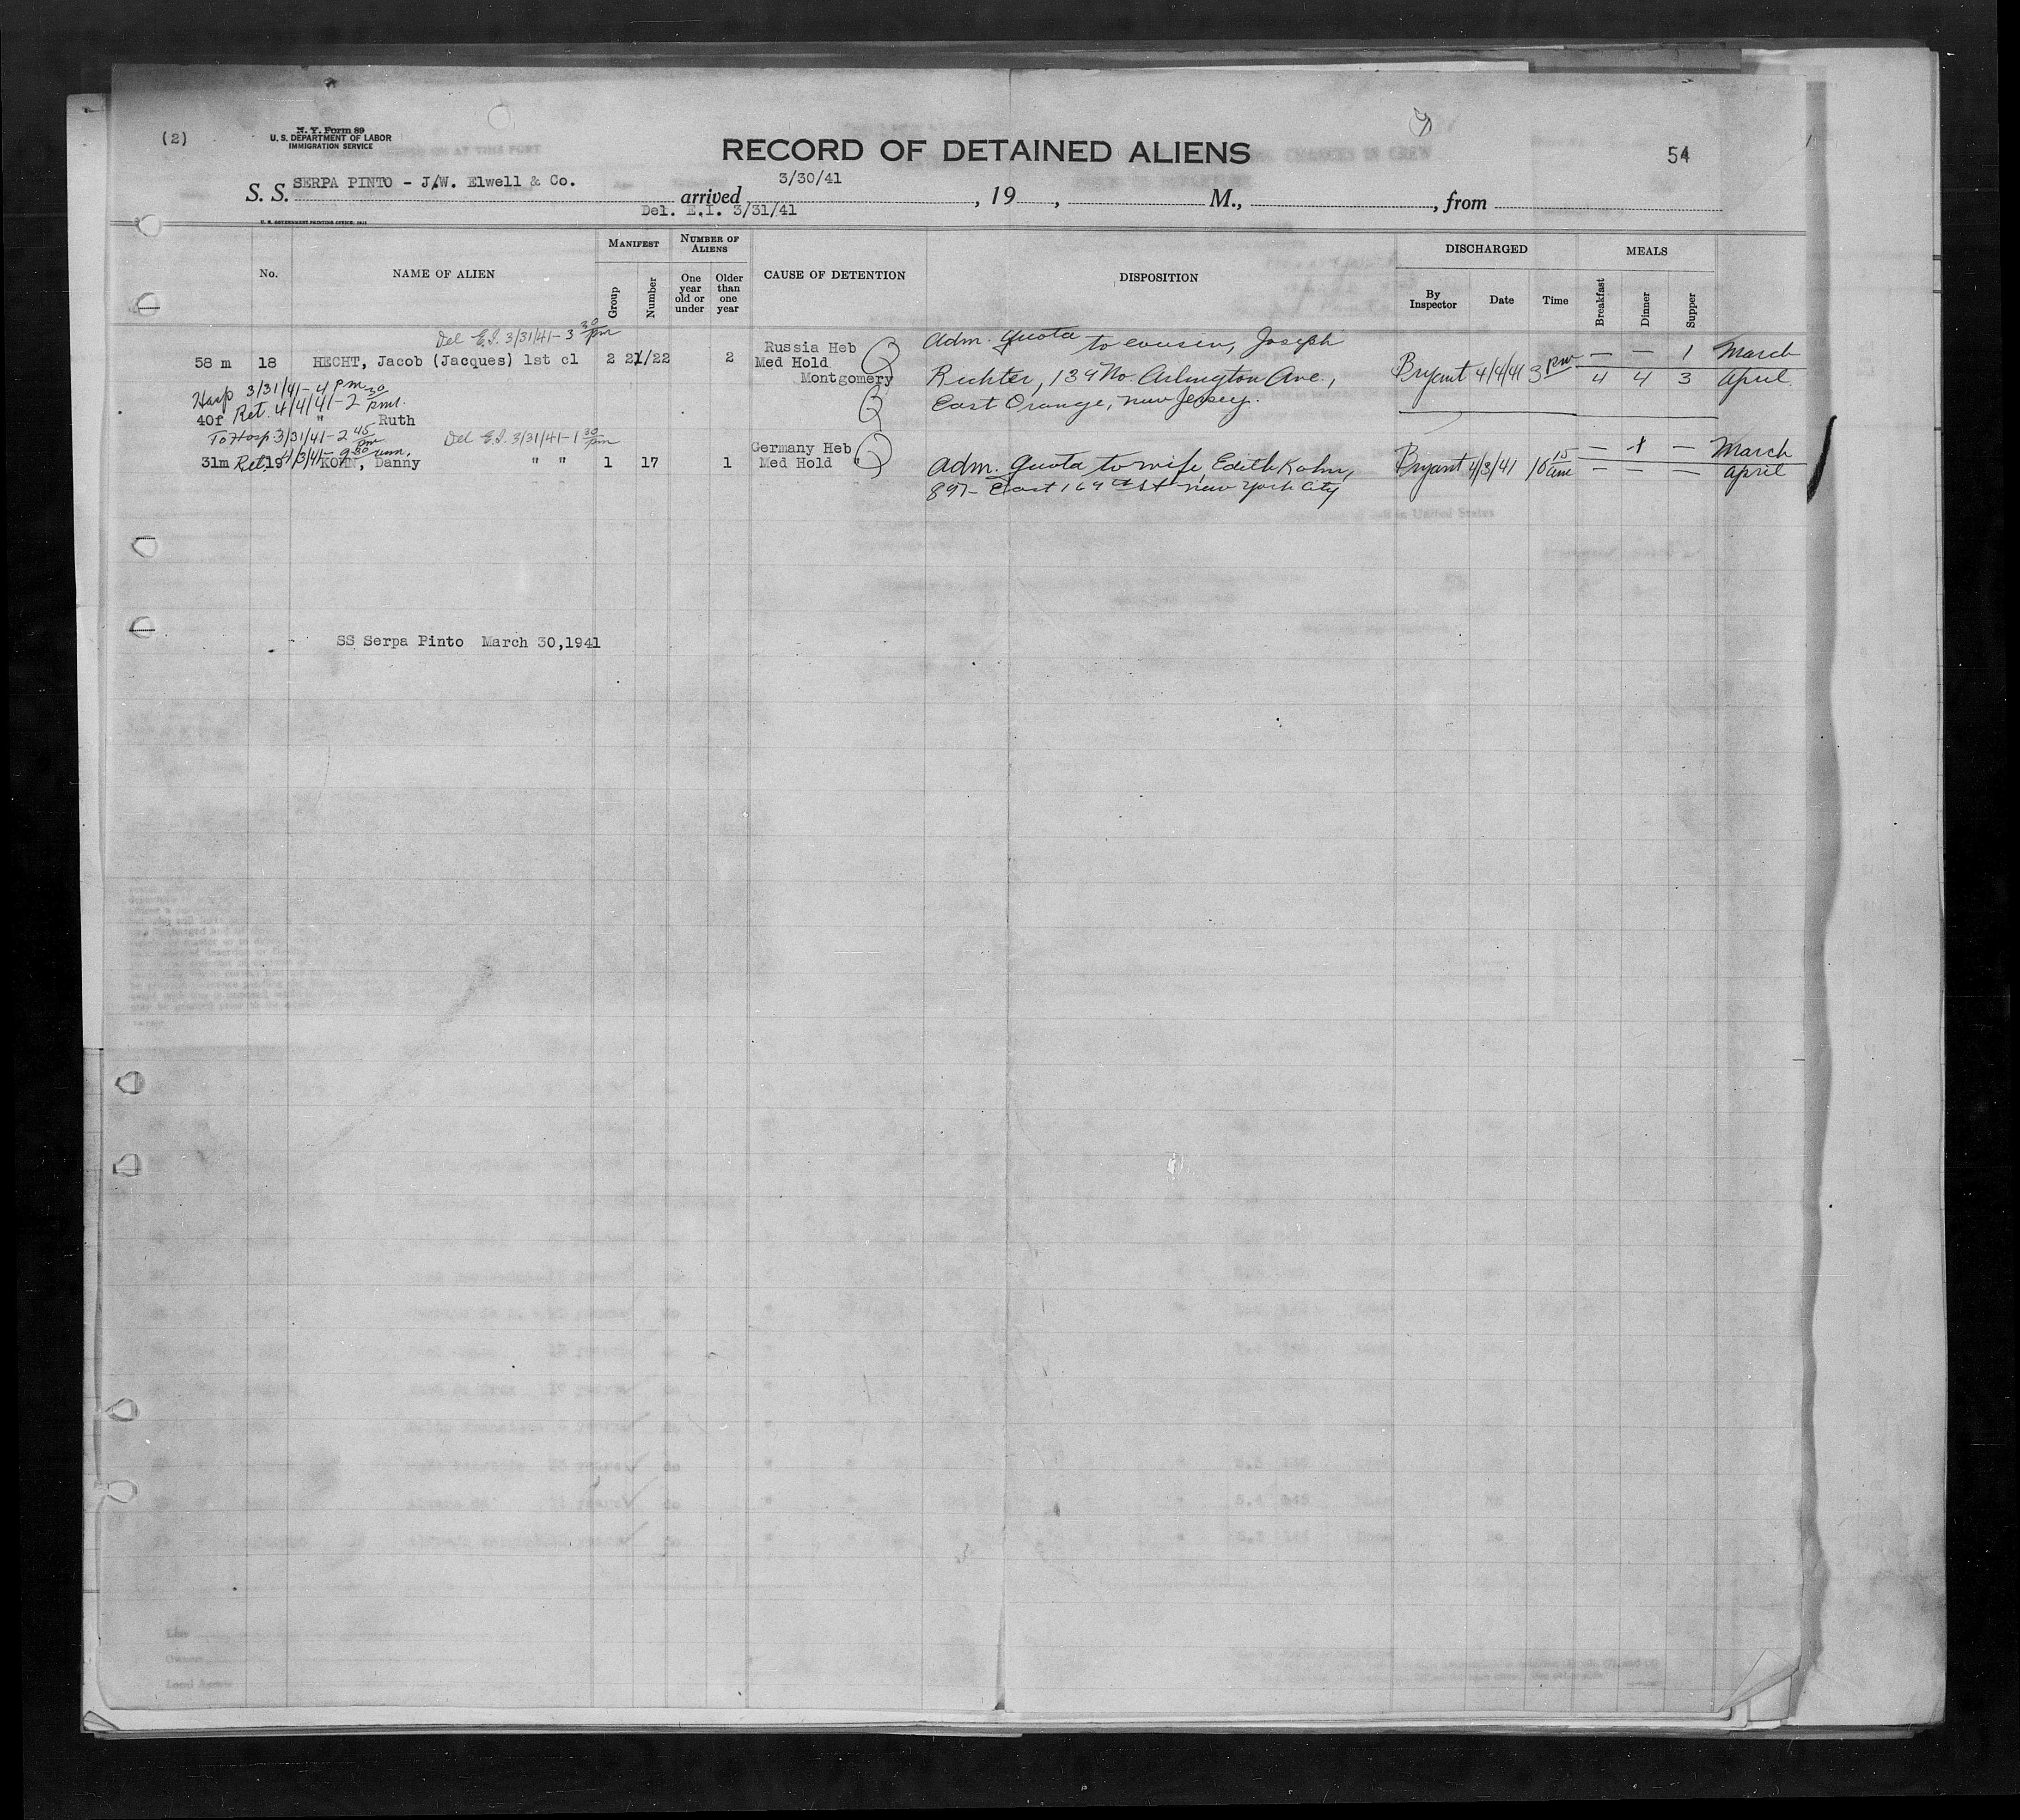 (2)
N. Y. Form 89
U. S. DEPARTMENT OF LABOR
IMMIGRATION SERVICE
RECORD OF DETAINED ALIENS
54
S. S. SERPA PINTO - J.W. Elwell & Co. arrived 3/30/41, 19 , M., , from
Del. E.I. 3/31/41
U. S. GOVERNMENT PRINTING OFFICE
No. NAME OF ALIEN MANIFEST Group Number NUMBER OF ALIENS One year old or under Older than one year CAUSE OF DETENTION DISPOSITION DISCHARGED By Inspector Date Time MEALS Breakfast Dinner Supper
Del E.I. 3/31/41 - 3 30 pm
58 m 18 HECHT, Jacob (Jacques) 1st cl 2 21/22 2 Russia Heb Adm. quota to cousin, Joseph — — 1 March
Med Hold
Montgomery Richter, 139 No. Arlington Ave., Bryant 4/4/41 3 pm 4 4 3 April
Hosp 3/31/41 - 4 pm
Ret. 4/4/41 - 2 30 pm.
East Orange, New Jersey.
40f " Ruth
To Hosp 3/31/41 - 2 45 pm Del E.I. 3/31/41 - 1 30 pm
Ret 4/3/41 - 9 50 am.
31m 19 KOHN, Danny " " 1 17 1 Germany Heb — 1 — March
Med Hold " Adm. quota to wife, Edith Kohn, Bryant 4/3/41 10 15 am — — — April
897- East 169th St New York City
SS Serpa Pinto March 30,1941